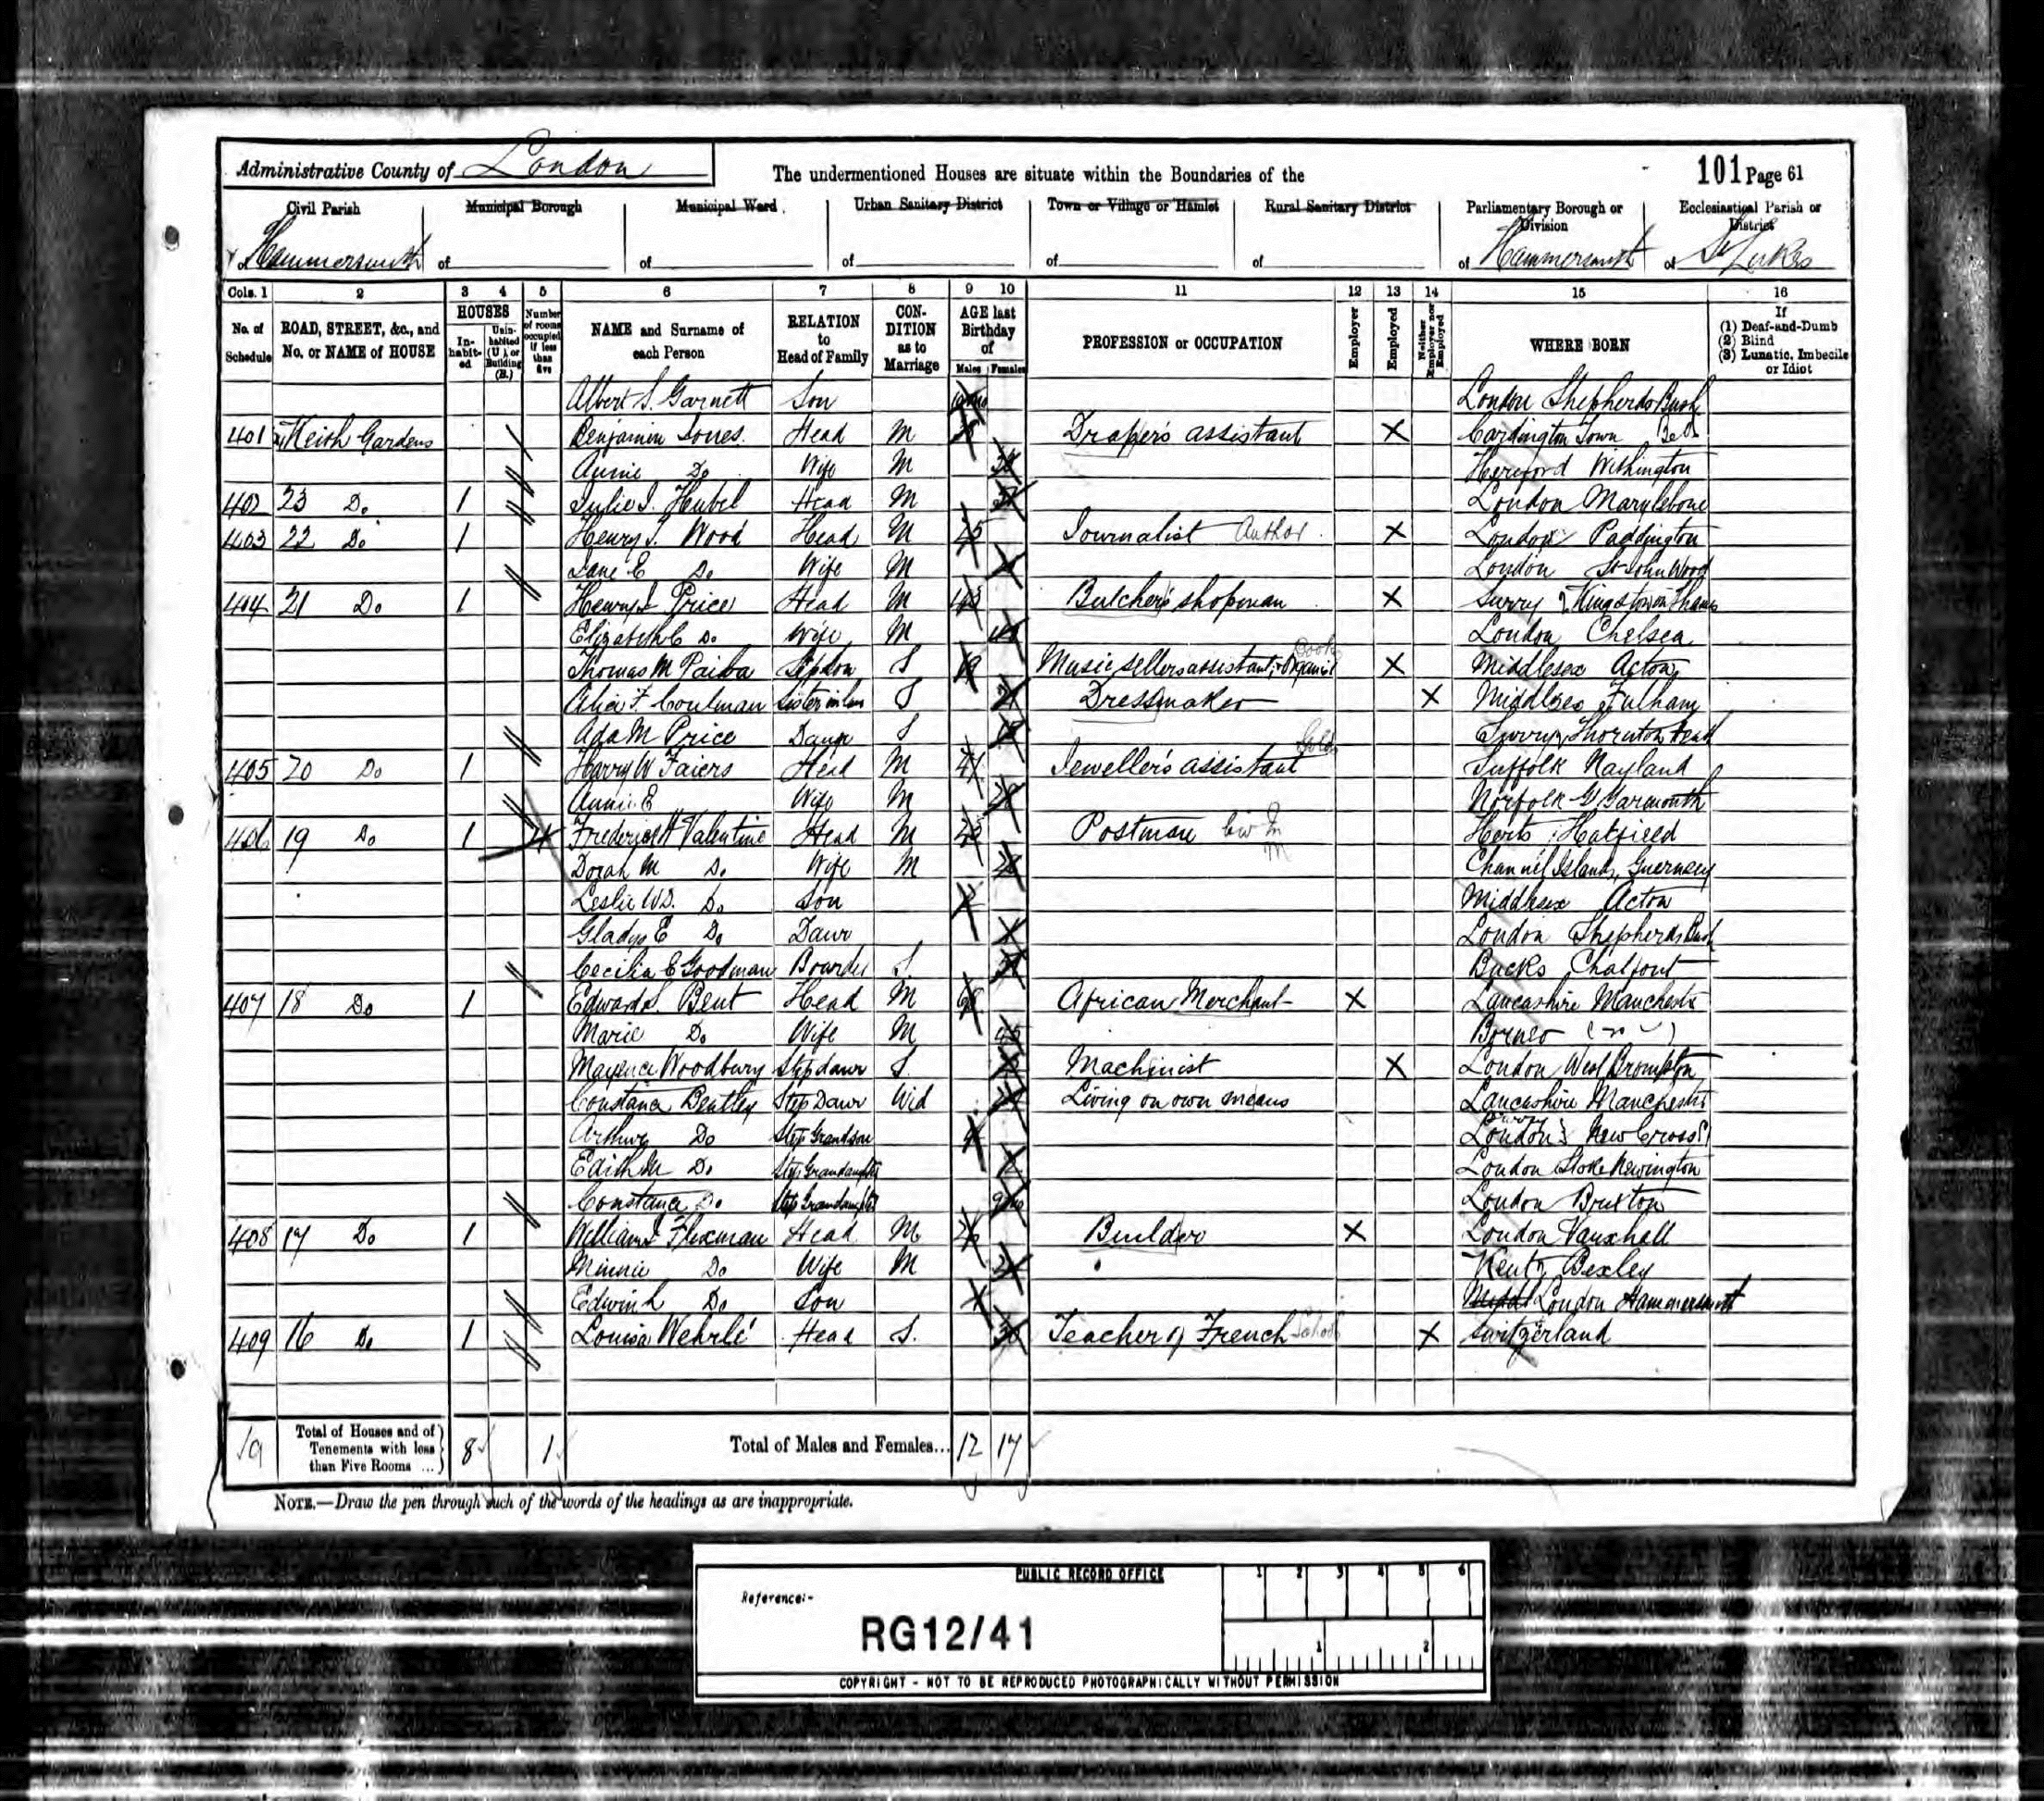 Administrative County of London
The undermentioned Houses are situate within the Boundaries of the
101 Page 61
Civil Parish
Municipal Borough
Municipal Ward
Urban Sanitary District
Town or Village or Hamlet
Rural Sanitary District
Parliamentary Borough or Division
Ecclesiastical Parish or District
of Hammersmith
of
of
of
of
of
of Hammersmith
of St Lukes
Cols. 1 2 3 4 5 6 7 8 9 10 11 12 13 14 15 16
No. of Schedule
ROAD, STREET, &c., and No. or NAME of HOUSE
HOUSES
In-habit-ed
Unin-habited (U.), or Building (B.)
Number of rooms occupied if less than five
NAME and Surname of each Person
RELATION to Head of Family
CON-DITION as to Marriage
AGE last Birthday of
Males Females
PROFESSION or OCCUPATION
Employer
Employed
Neither Employer nor Employed
WHERE BORN
If
(1) Deaf-and-Dumb
(2) Blind
(3) Lunatic, Imbecile or Idiot
Albert S. Garnett Son London Shepherds Bush
401 Keith Gardens Benjamin Jones Head M Draper's assistant X Cardington Town Beds
Annie Do Wife M Hereford Withington
402 23 Do 1 Julie I. Hubel Head M London Marylebone
403 22 Do 1 Henry T. Wood Head M 25 Journalist Author X London Paddington
Jane E Do Wife M London St John Wood
404 21 Do 1 Henry J Price Head M 43 Butcher's shopman X Surry Kingston on Thames
Elizabeth C Do Wife M London Chelsea
Thomas M Paiba Stepson S 19 Music sellers assistant & Organist X Middlesex Acton
Alice F. Coulman Sister in law S Dressmaker X Middlesex Fulham
Ada M Price Daur S Surry Thornton Heath
405 20 Do 1 Harry W Faiers Head M 41 Jeweller's assistant Gold Suffolk Nayland
Annie E Wife M Norfolk Gt Yarmouth
406 19 Do 1 4 Frederick H Valentine Head M Postman Herts Hatfield
Dorah M Do Wife M Channel Islands, Guernsey
Leslie W.D. Do Son Middlesex Acton
Gladys E Do Daur London Shepherds Bush
Cecilia E Goodman Boarder S. Bucks Chalfont
407 18 Do 1 Edward S. Bent Head M African Merchant X Lancashire Manchester
Marie Do Wife M Borneo
Woodbury Step daur S. Machinist X London West Brompton
Constance Bentley Step Daur Wid Living on own means Lancashire Manchester
Arthur Do Step Grandson London New Cross
Edith M Do Step Grandaughter London Stoke Newington
Constance Do Step Grandaughter London Brixton
408 17 Do 1 William J Flaxman Head M 26 Builder X London Vauxhall
Minnie Do Wife M Kent Bexley
Edwin L Do Son London Hammersmith
409 16 Do 1 Louisa Wehrlé Head S. 30 Teacher of French School X Switzerland
Total of Houses and of Tenements with less than Five Rooms ... 8 1
Total of Males and Females... 12 17
NOTE.—Draw the pen through such of the words of the headings as are inappropriate.
PUBLIC RECORD OFFICE
1 2 3 4 5 6
Reference:-
RG12/41
1 2
COPYRIGHT - NOT TO BE REPRODUCED PHOTOGRAPHICALLY WITHOUT PERMISSION